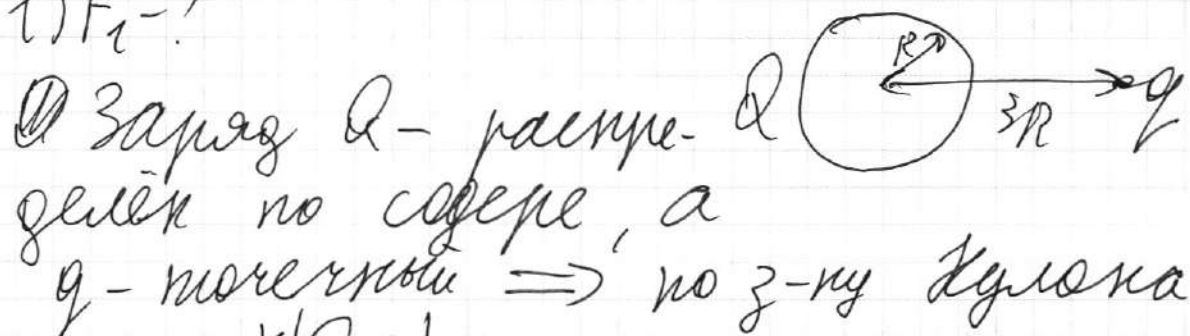 1) F₁ - ?
Заряд Q - распре-
делён по сфере, а
q - точечный => по з-ну Кулона
Q R 3R q